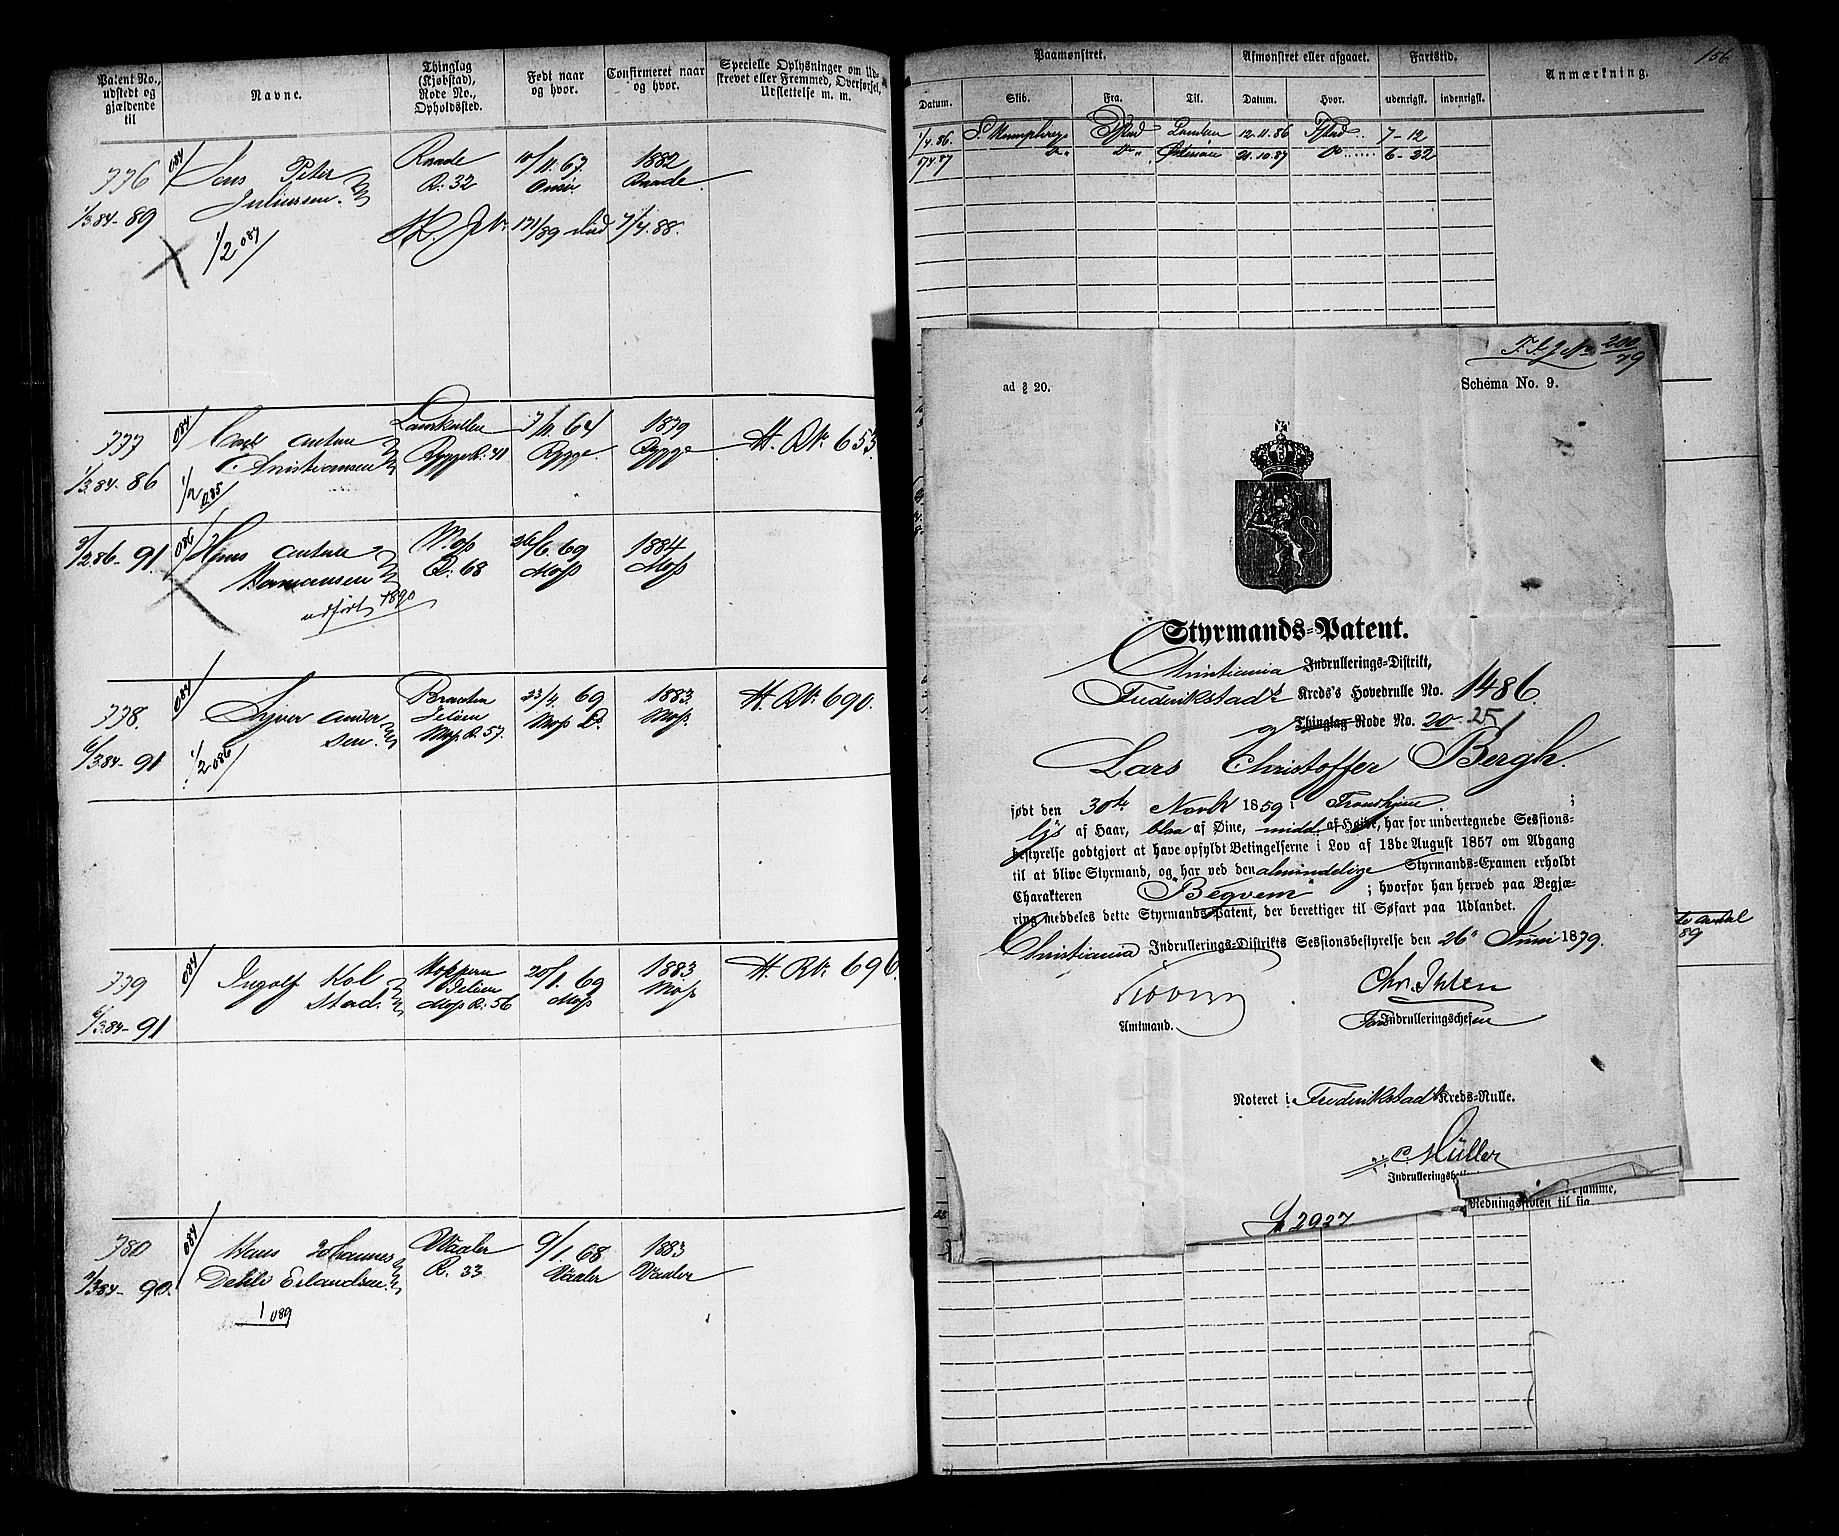 Patent No., udstedt og gjældende til
Navne.
Thinglag (Kjøbstad), Rode No., Opholdssted.
Født naar og hvor.
Confirmeret naar og hvor.
Specielle Oplysninger om Udskrevet eller Fremmed, Overførsel, Udslettelse m. m.
776
1/3.84-89
084
Jens Peter
Juliussen.
1/2 087
Raade
R. 32
10/11.67
Onsø.
1882
Raade.
17/1/89
7/4.88.
777
1/3.84-86
084
Carl Anton
Christiansen
1/2 085
Larkollen
Rygge R. 41
7/11 64
Rygge.
1879
Rygge
H. R№ 653
3/2 86-91.
086
Hans Anton
Hermansen
udført 1890
Moss
R. 68
26/6. 69
Moss
1884
Moss
778.
6/3.84-91
084
Syver Ander
sen.
1/2 086
Braaten
Jeløen
Moss R. 57.
23/4. 69
Moss D.
1883.
Moss.
H. R№ 690.
779
6/3.84-91
084
Ingolf Kol
stad.
Koppern
Jeløen
Moss R. 56
20/1. 69
Moss
1883
Moss
H. R№ 696
780
084
11/3.84-90.
Hans Johannes
Dehli Erlandsen.
1 089
Vaaler
R. 33
9/1. 68
Vaaler
1883
Vaaler
156
Paamønstret.
Afmønstret eller afgaaet.
Fartstid.
Anmærkning.
Datum.
Skib.
Fra.
Til.
Datum.
Hvor.
udenrigsk.
indenrigsk.
1/4.86. S. Humphreys Fstad London 12.11.86 Fstad 7-12
87 Do Do 21.10.87 Do 6-22
200/79
ad § 20.
Schema No. 9.
Styrmands-Patent.
Christiania Indrullerings-Distrikt,
Frederikstads Kreds's Hovedrulle No. 1486.
og Thinglag Rode No. 20-25
Lars Christoffer Bergh.
født den 30te Novbr 1859 i Trondhjem ;
lys af Haar, blaa af Øine, midd. af Høide, har for undertegnede Sessions-
bestyrelse godtgjort at have opfyldt Betingelserne i Lov af 13de August 1857 om Adgang
til at blive Styrmand, og har ved den almindelige Styrmands-Examen erholdt
Charakteren "Beqvem" ; hvorfor han herved paa Begjæ-
ring meddeles dette Styrmands-Patent, der berettiger til Søfart paa Udlandet.
Christiania Indrullerings-Distrikts Sessionsbestyrelse den 26' Juni 1879.
Chr. Ihlen
Amtmand.
For Indrulleringschefen
Noteret i Frederikstads Kreds-Rulle.
C. Müller
L 2927
Redningsfloten til sig